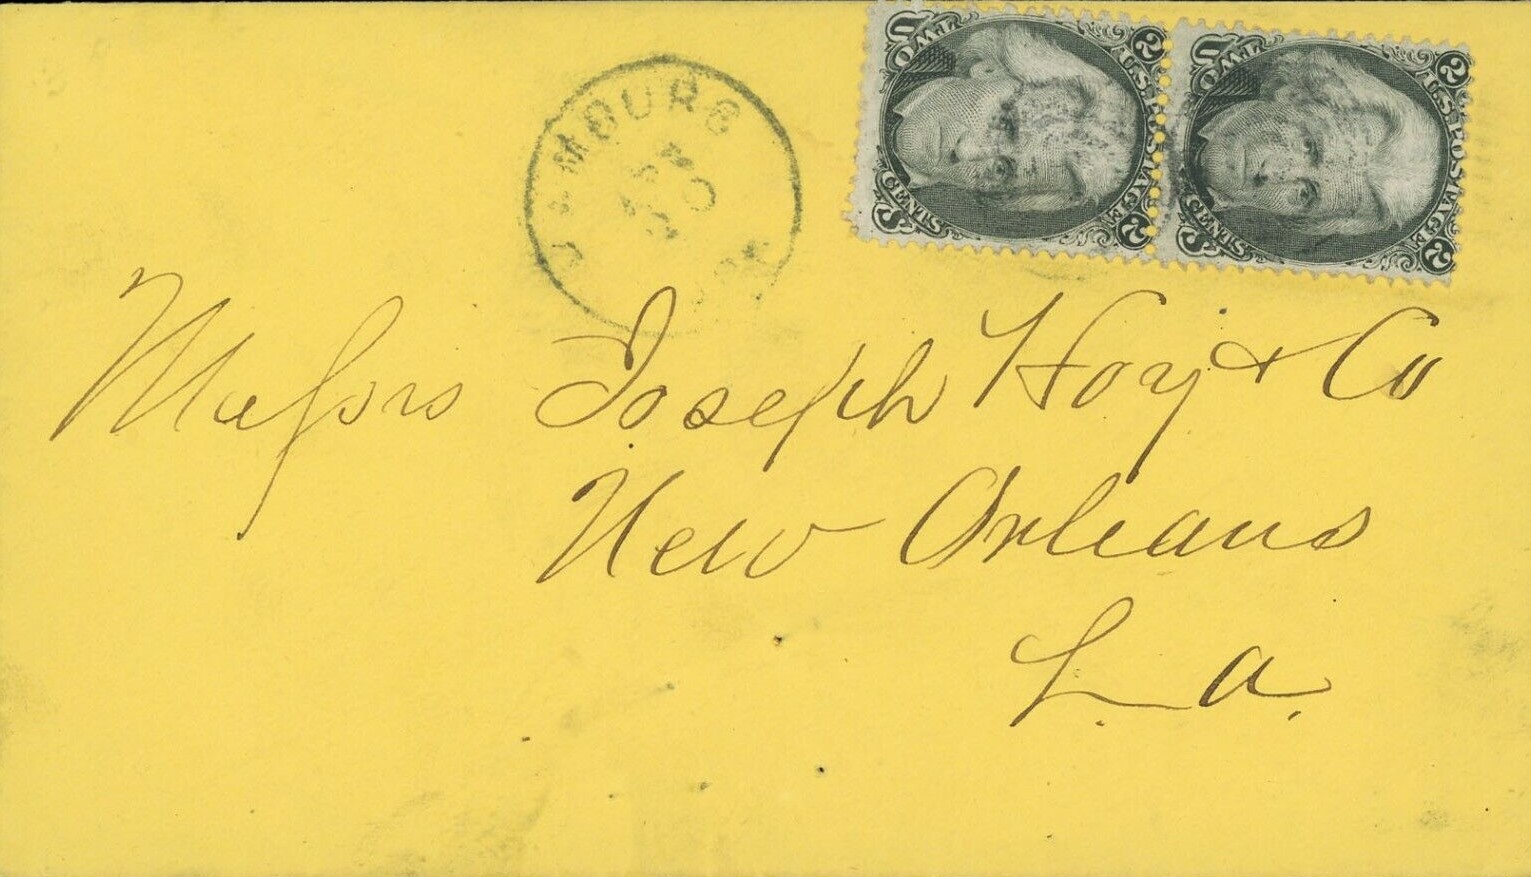 U.S. POSTAGE
2 2
TWO CENTS
U.S. POSTAGE
2 2
TWO CENTS
Messrs Joseph Hoy & Co
New Orleans
La.